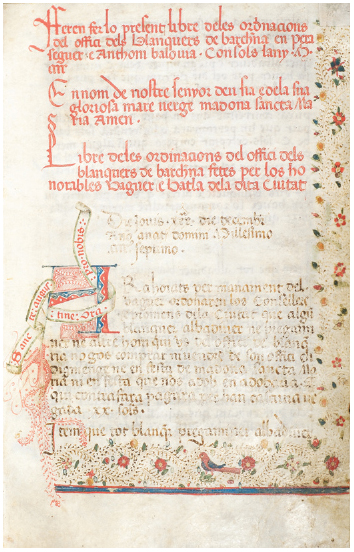 Feren fer lo present libre deles ordinacions
del offici dels blanquers de barchna en pere
seguer e Anthoni balbina. Consols lany. M.
En nom de nostre senyor deu sia e dela sua
gloriosa mare verge madona sancta Ma
ria Amen.
Libre deles ordinacions del offici dels
blanquers de barchna fetes per los ho
norables Vaguer e Batla dela dita Ciutat
die decembr
Anno anat domini Millesimo
septimo.
ora pro nobis.
Sancte augu
stine
Ra hoiats per manament del
vaguer ordonaren los Consellers
e promens dela Ciutat que algu
blanquer albadiner ne pergami
ner ne altre hom qui us del offici de blanq
ria no gos comprar
digmenge ne en festa de madona sancta Ma
ria ni en festa que nos adob en adobaria. E
qui contrafara pagara per
gada .xx. sols.
Item que tot blanq pregaminer albadiner